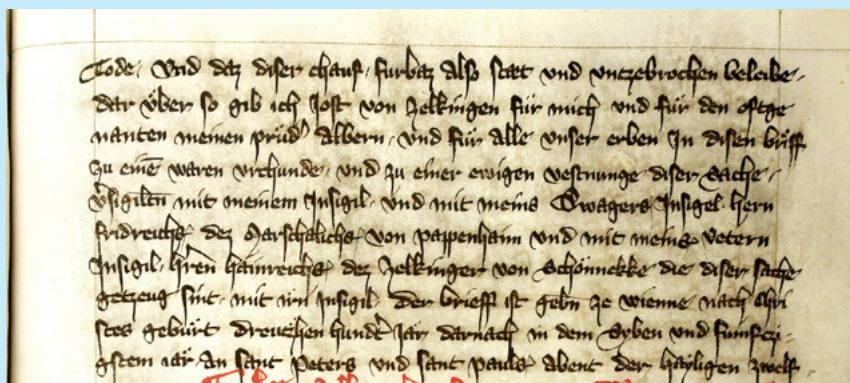 Tode. Vnd daz diser chauf. furbaz also stet vnd vntzebrochen beleibe.
dar vber so gib ich Jost von Zelkingen für mich vnd für den oftge
nanten meinen prüd' Albern. vnd für alle vnser erben In disen briff
zu eine waren vrchunde. vnd zu einer ewigen vestnunge diser sache.
v'sigiltn mit meinem Insigil. vnd mit meins Swagers Insigel hern
fridreichs dez Marschalichs von pappenhaim vnd mit meins vetern
Insigil. hren hainreichs dez Zelkinger von Schönnekke die diser sache
getzeug sint. mit irn Insigil. der brieff ist gebn ze wienne nach Chri
stes gebürt dreutzhen hundt Jar darnach in dem Syben vnd funftzi
gstem iar An sant Peters vnd sant pauls abent der hayligen zwelf